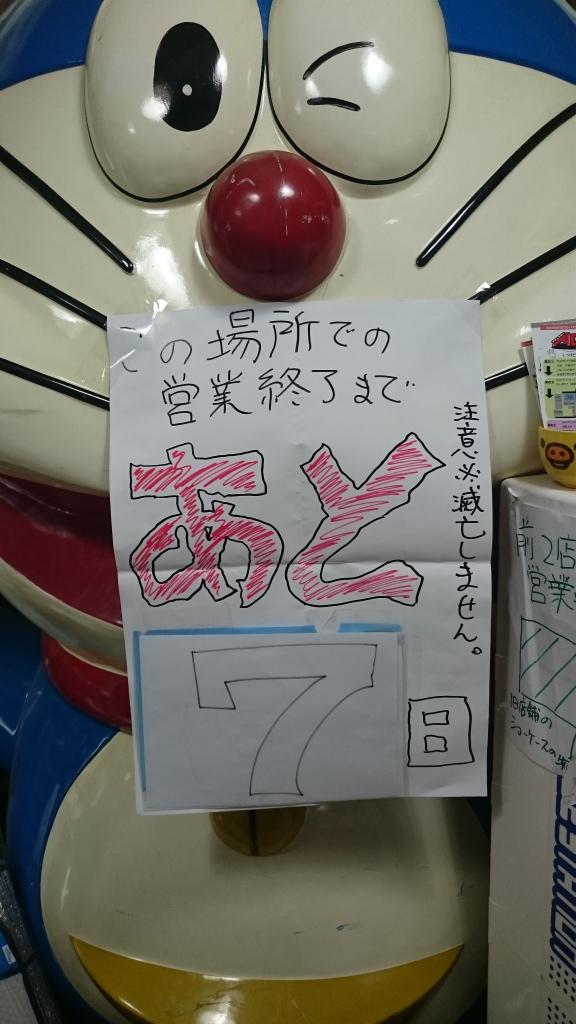 この場所での
営業終了まで
あと
7日
注意必滅亡しません。
前2店
営業
旧店舗の
ショーケースの